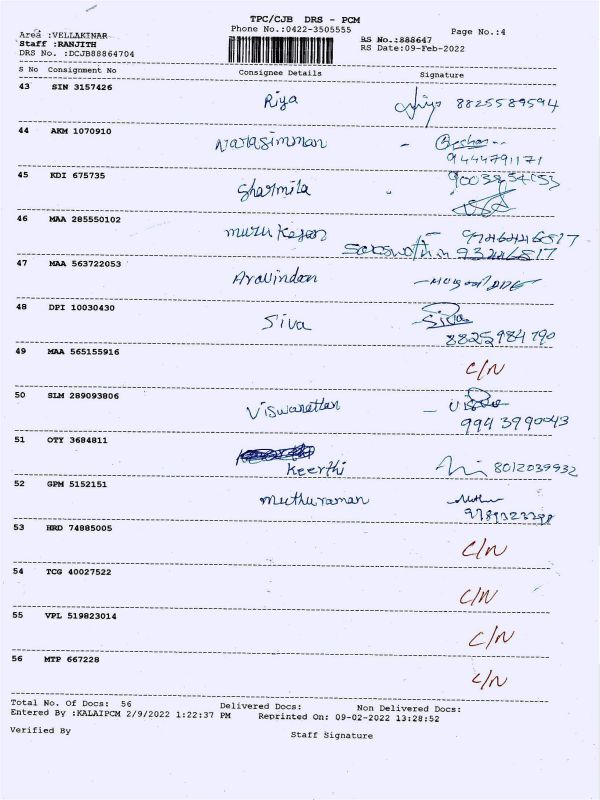 TPC/CJB DRS - PCM
Phone No.:0422-3505555
Page No.:4
Area :VELLAKINAR
Staff :RANJITH
DRS No. :DCJB88864704
RS No.:888647
RS Date:09-Feb-2022
S No Consignment No Consignee Details Signature
43 SIN 3157426 Riya 8825589594
44 AKM 1070910 Narasimman -
9444791171
45 KDI 675735 Sharmila
46 MAA 285550102 muru Kesan
47 MAA 563722053 Aravindan
48 DPI 10030430 Siva Siva
8825984790
49 MAA 565155916 C/N
50 SLM 289093806 -
9943990043
51 OTY 3684811 Keerthi 8012039932
52 GPM 5152151 muthuraman
53 HRD 74885005 C/N
54 TCG 40027522 C/N
55 VPL 519823014 C/N
56 MTP 667228 C/N
Total No. Of Docs: 56 Delivered Docs: Non Delivered Docs:
Entered By :KALAIPCM 2/9/2022 1:22:37 PM Reprinted On: 09-02-2022 13:28:52
Verified By Staff Signature